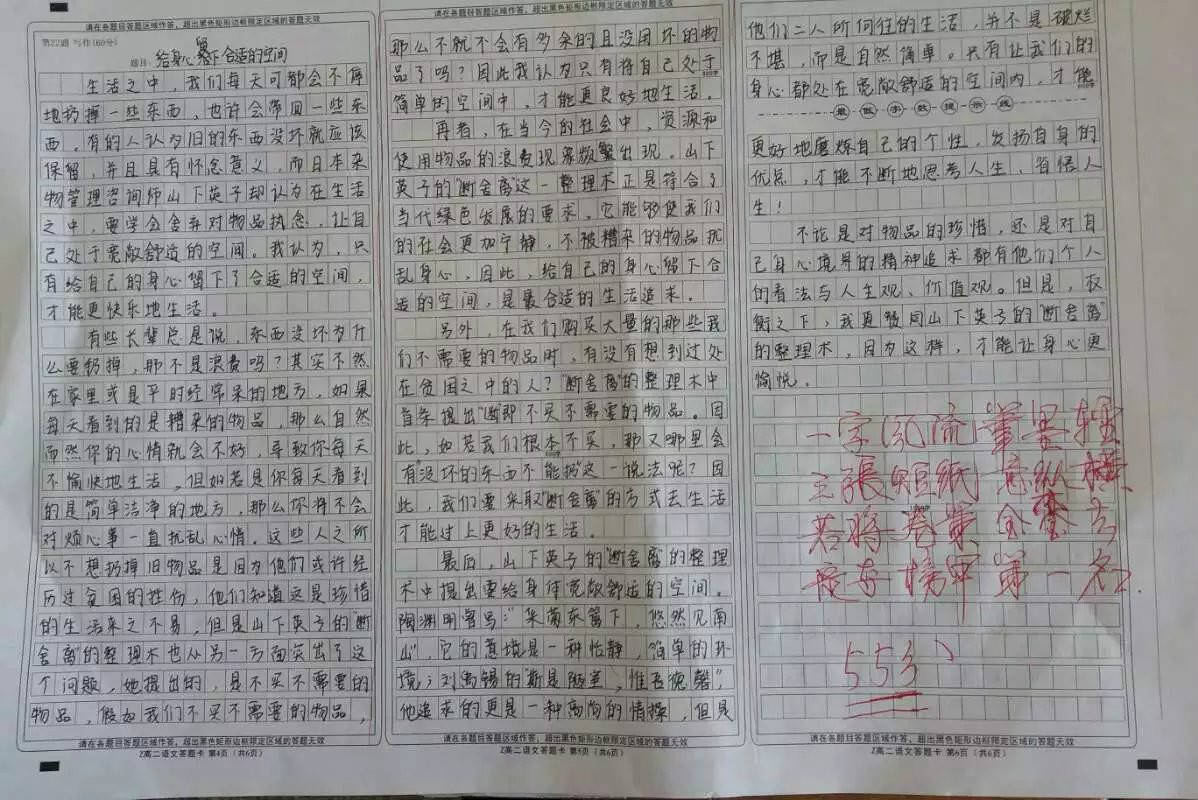 请在各题目答题区域作答，超出黑色矩形边框限定区域的答题无效
第22题 写作(60分)
题目: 给身心留下合适的空间
生活之中，我们每天可都会不停
地扔掉一些东西，也许会带回一些东
西。有的人认为旧的东西没坏就应该
保留，并且具有怀念意义，而日本杂
物管理咨询师山下英子却认为在生活
之中，要学会舍弃对物品执念，让自
己处于宽敞舒适的空间。我认为，只
有给自己的身心留下了合适的空间，
才能更快乐地生活。
有些长辈总是说，东西没坏为什
么要扔掉，那不是浪费吗？其实不然
在家里或是平时经常呆的地方，如果
每天看到的是糟来的物品，那么自然
而然你的心情就会不好，导致你每天
不愉快地生活，但如若是你每天看到
的是简单洁净的地方，那么你将不会
对烦心事一直扰乱心情。这些人之所
以不想扔掉旧物品是因为他们或许经
历过贫困的牲伤，他们知道这是珍惜
的生活来之不易，但是山下英子的“断
舍离”的整理术也从另一方面突出了这
个问题，她提出的，是不买不需要的
物品，假如我们不买不需要的物品，
请在各题目答题区域作答，超出黑色矩形边框限定区域的答题无效
Z高二语文答题卡 第4页（共6页）
请在各题目答题区域作答，超出黑色矩形边框限定区域的答题无效
那么不就不会有多余的且没用坏的物
品了吗？因此我认为只有将自己处于
简单的空间中，才能更良好地生活。
再者，在当今的社会中，资源和
使用物品的浪费现象频繁出现。山下
英子的“断舍离”这一整理术正是符合了
当代绿色发展的要求，它能够使我们
的社会更加宁静，不被糟来的物品扰
乱身心，因此，给自己的身心留下合
适的空间，是最合适的生活追求。
另外，在我们购买大量的那些我
们不需要的物品时，有没有想到过处
在贫困之中的人？“断舍离”的整理术中
首条提出“断”即不买不需要的物品。因
此，如若我们根本不买，那又哪里会
有没坏的东西不能扔这一说法呢？因
此，我们要采取“断舍离”的方式去生活
才能过上更好的生活。
最后，山下英子的“断舍离”的整理
术中提出要给身体宽敞舒适的空间。
陶渊明曾写：“采菊东篱下，悠然见南
山”，它的意境是一种恬静，简单的环
境；刘禹锡的“斯是陋室，惟吾德馨”，
他追求的更是一种高尚的情操，但是
请在各题目答题区域作答，超出黑色矩形边框限定区域的答题无效
Z高二语文答题卡 第5页（共6页）
请在各题目答题区域作答，超出黑色矩形边框限定区域的答题无效
他们二人所向往的生活，并不是破烂
不堪，而是自然简单。只有让我们的
身心都处在宽敞舒适的空间内，才能
最低字数提示线
更好地磨炼自己的个性，发扬自身的
优点，才能不断地思考人生，省悟人
生！
不论是对物品的珍惜，还是对自
己身心境界的精神追求都有他们个人
的看法与人生观、价值观。但是，权
衡之下，我更赞同山下英子的“断舍离”
的整理术，因为这样，才能让身心更
愉悦。
一字风流笔墨轻
三張短紙意纵横
若將卷第全
榜甲第一名
553
请在各题目答题区域作答，超出黑色矩形边框限定区域的答题无效
Z高二语文答题卡 第6页（共6页）